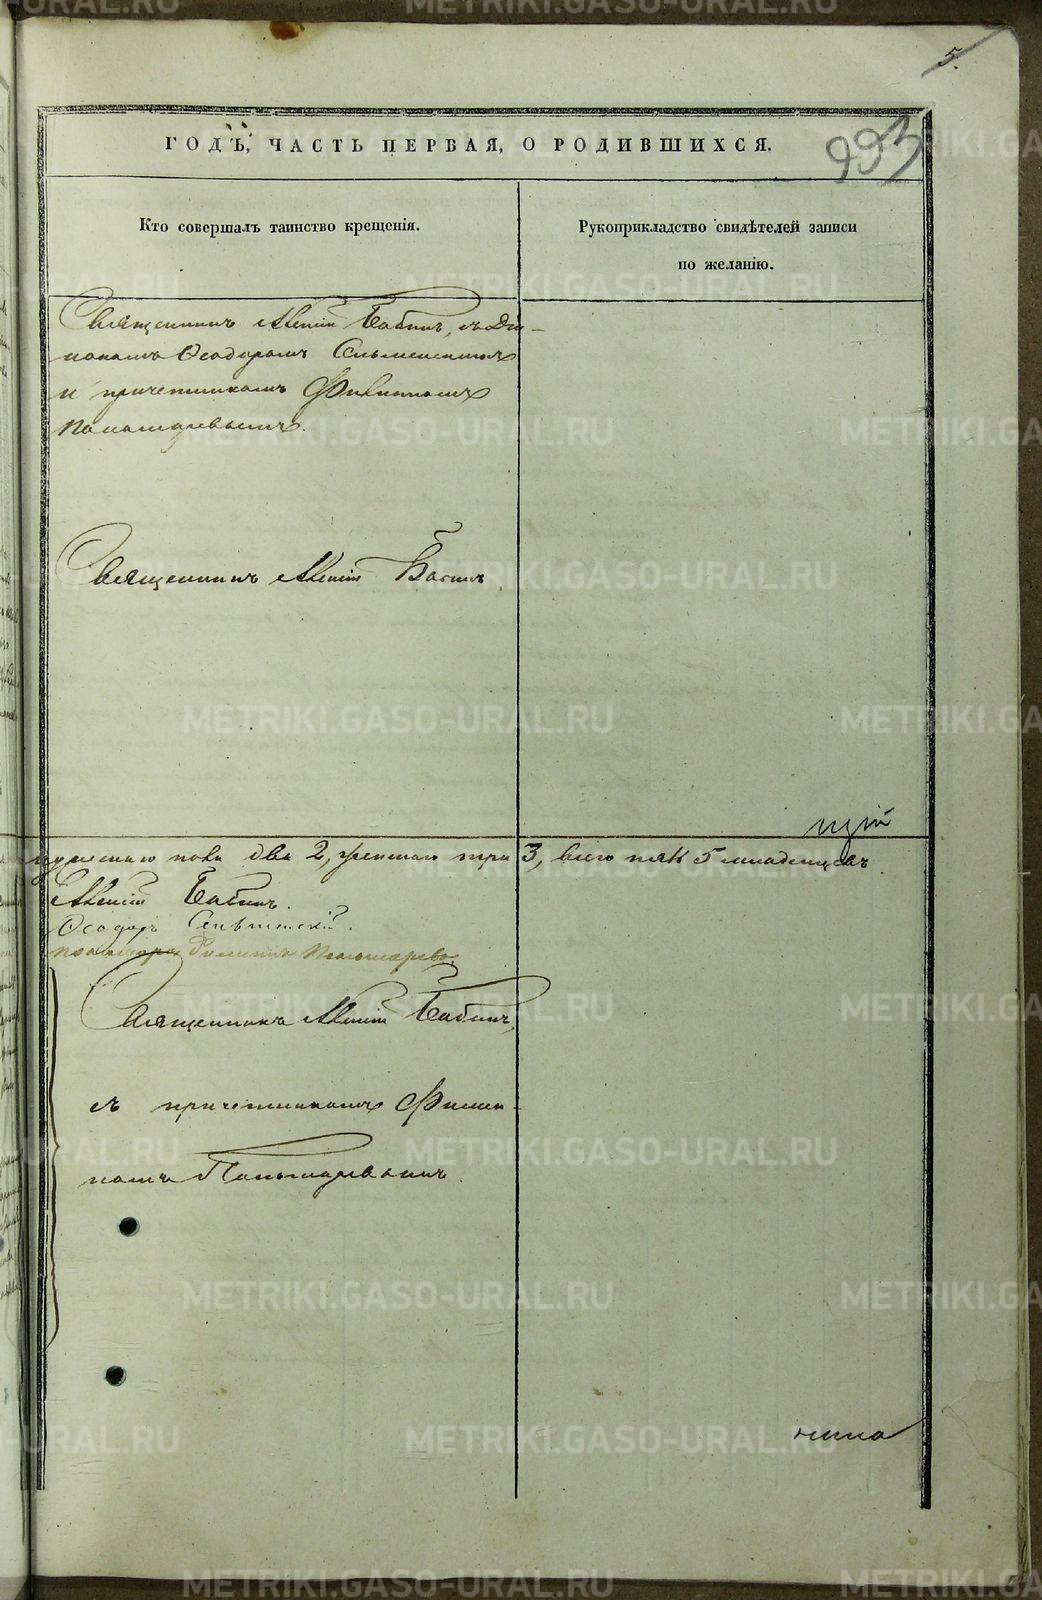 5.
993
ГОДЪ, ЧАСТЬ ПЕРВАЯ, О РОДИВШИХСЯ.
Кто совершалъ таинство крещенія.
Рукоприкладство свидѣтелей записи
по желанію.
Священникъ Алексій Бабинъ, съ Діа-
кономъ Ѳеодоромъ
и причетникомъ Филиппомъ
Пономаревымъ.
Священникъ Алексій Бабинъ.
цій
мужескаго пола два 2, женскаго три 3, всего пять 5 младенцевъ.
Алексій Бабинъ.
Ѳеодоръ
Пономарь Филиппъ Пономаревъ
Священникъ Алексій Бабинъ,
съ причетникомъ Филип-
помъ Пономаревымъ.
METRIKI.GASO-URAL.RU